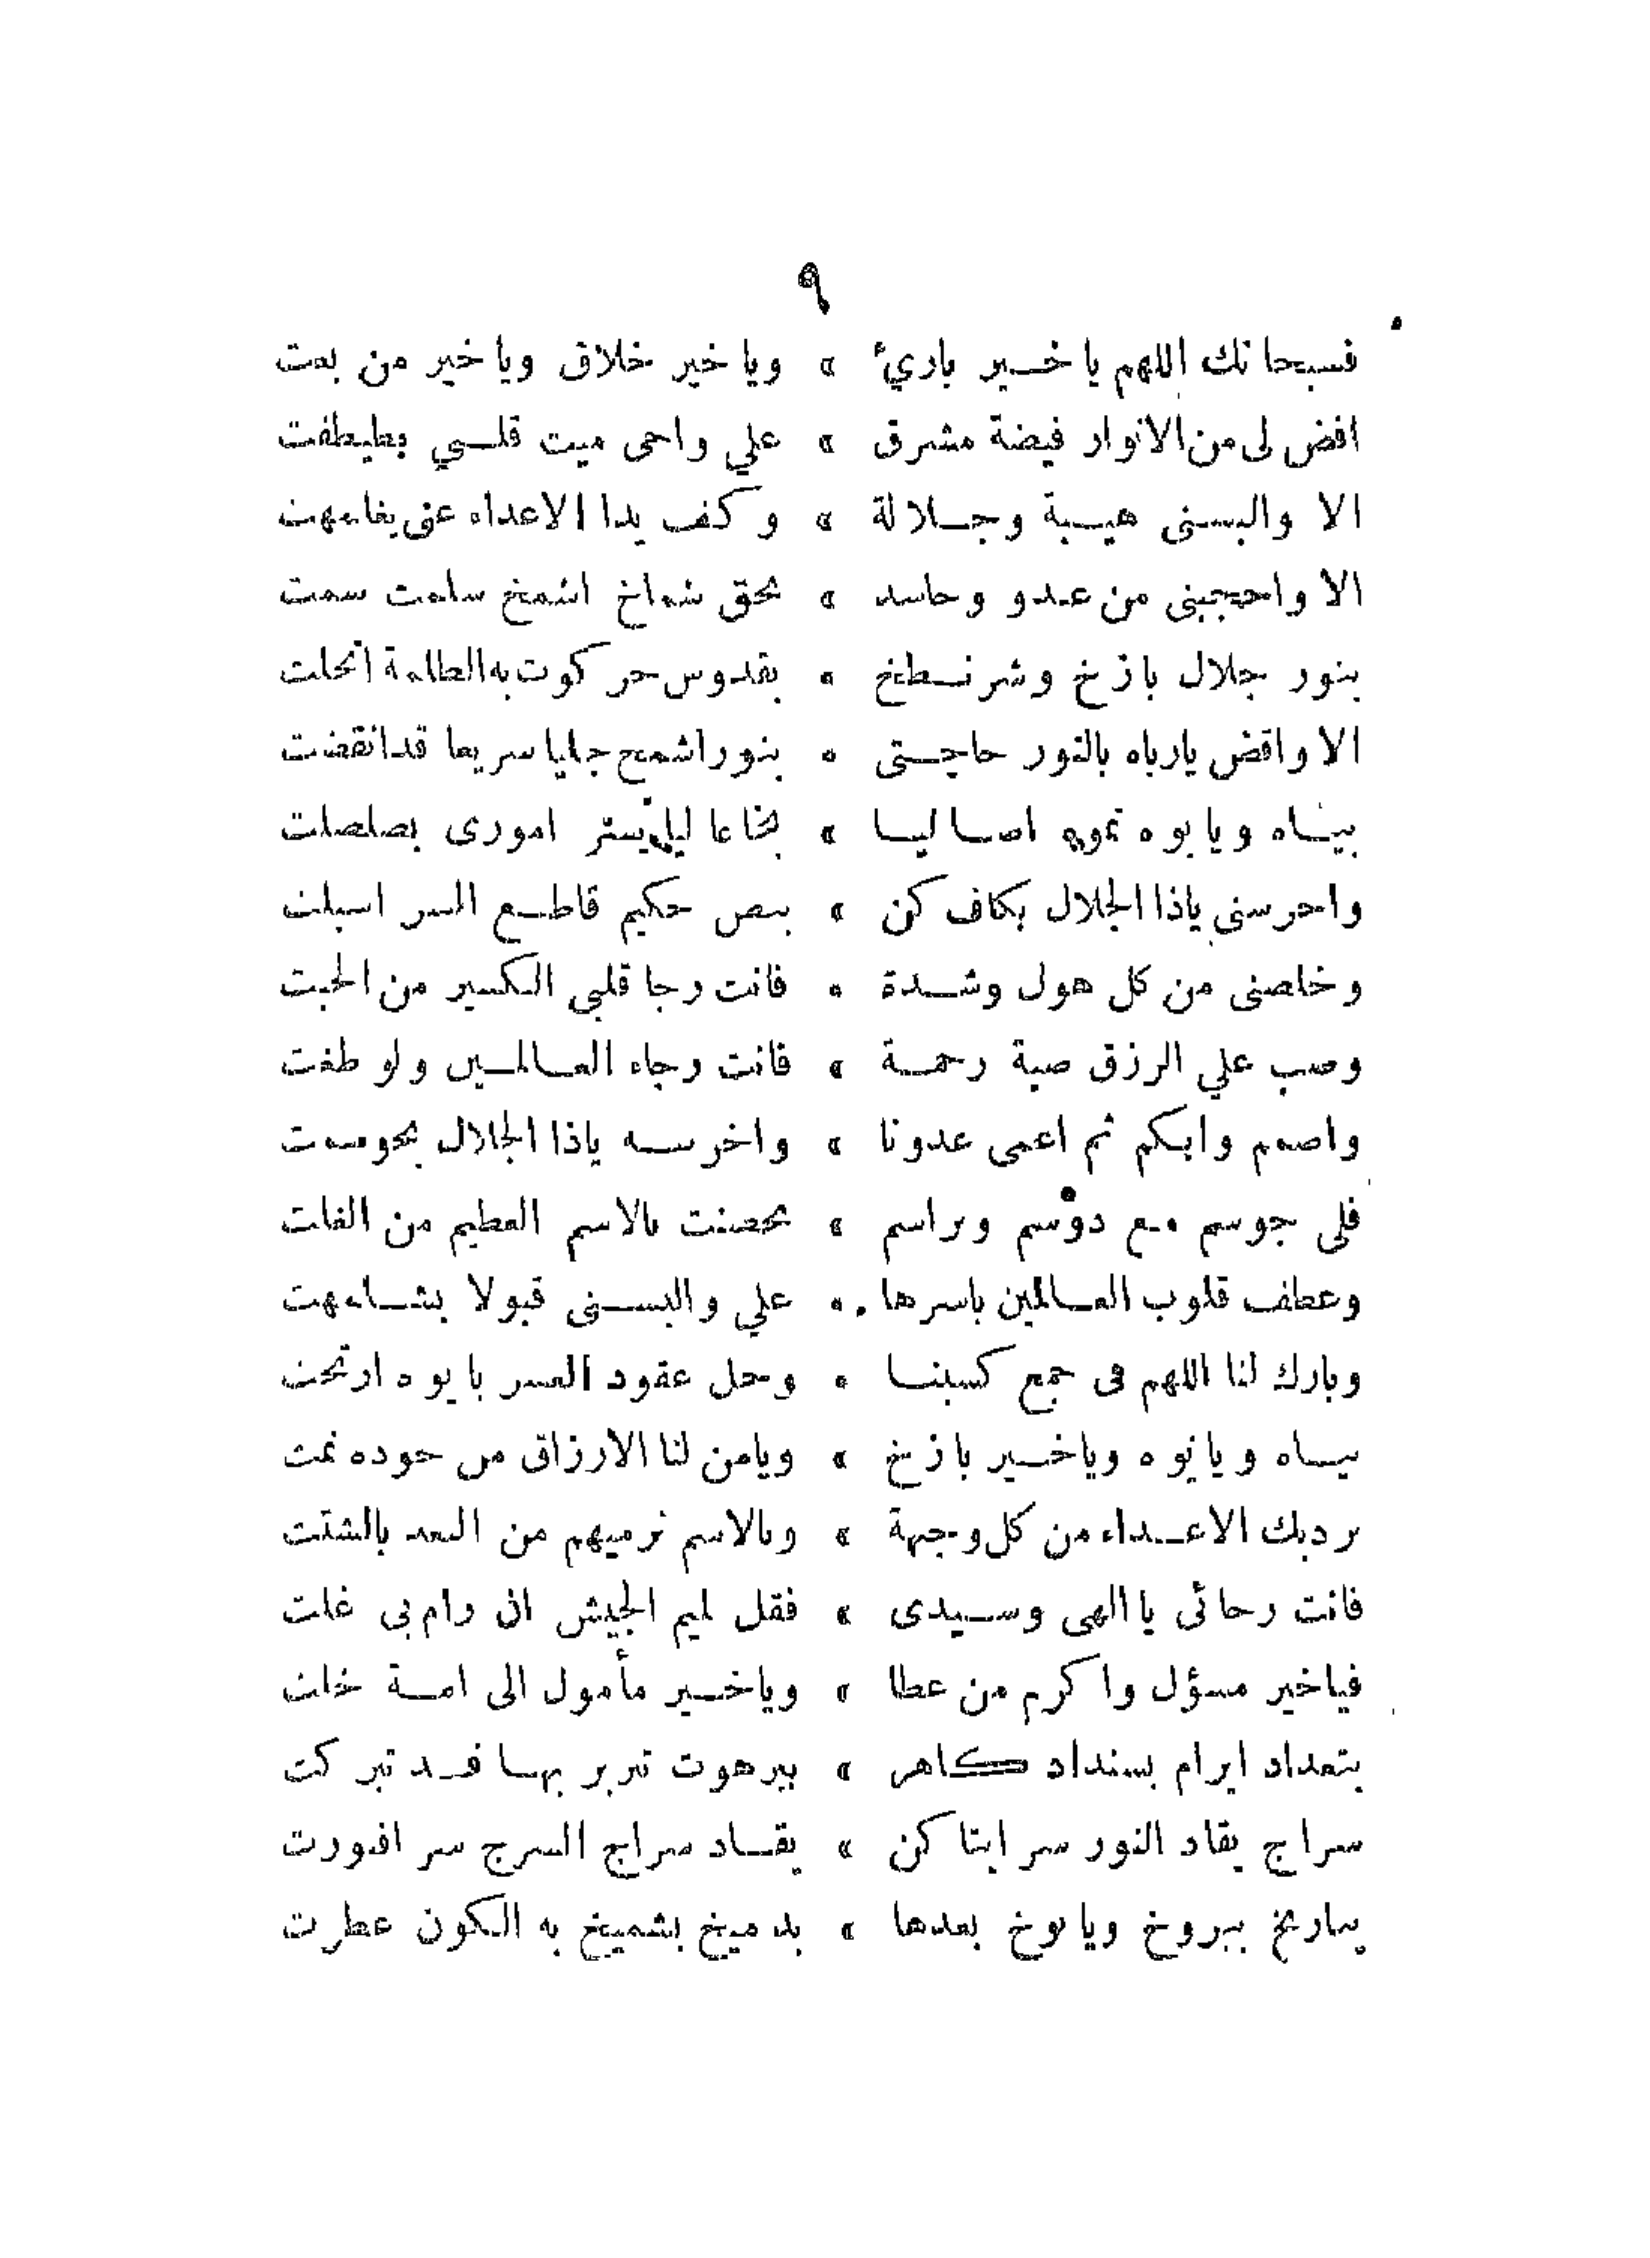 ٩
فسبحانك اللهم ياخير باريء » وياخير خلاق وياخير من بعت
افض لى من الانوار فيضة مشرق » علي واحى ميت قلبي بطيطفت
الا والبسنى هيبة وجلالة » وكف يدا الاعداء عنى بغلمهت
الا واحجبنى من عدو وحاسد » بحق شماخ اشمخ سلمت سمت
بنور جلال بازخ وشرنطخ » بقدوس بركوت به الظلمة انجلت
الا واقض يارباه بالنور حاجتى » بنور اشمح جليا سريعا قد انقضت
بياه ويا يوه نموه اصاليا » يسر امورى بصلصلت
واحرسنى ياذا الجلال بكاف كن » بنص حكيم قاطع السر اسبلت
وخلصنى من كل هول وشدة » فانت رجا قلبي الكسير من الخبت
وصب علي الرزق صبة رحمة » فانت رجاء العالمين ولو طغت
واصمم وابكم ثم اعمى عدونا » واخرسه ياذا الجلال بحوسمت
فلى جوسم مع دوسم وبراسم » تحصنت بالاسم العظيم من الغلت
وعطف قلوب العالمين باسرها » علي والبسنى قبولا بشلمهت
وبارك لنا اللهم فى جمع كسبنا » وحل عقود العسر بايوه ارتحت
بياه ويايوه وياخير بازخ » ويامن لنا الارزاق من جوده نمت
نرد بك الاعداء من كل وجهة » وبالاسم نرميهم من البعد بالشتت
فانت رجائى يا الهى وسيدى » فقل لميم الجيش ان رام بى غلت
فياخير مسؤل واكرم من عطا » وياخير مأمول الى امة خلت
بتعداد ابرام بسنداد كاهر » ببرهوت تبربر بها قد تبركت
سراج يقاد النور سرا بتاكن » يقاد سراج السرج سرا فنورت
بيارخ بيروخ ويا نوخ بعدها » بدميخ بشميخ به الكون عطرت